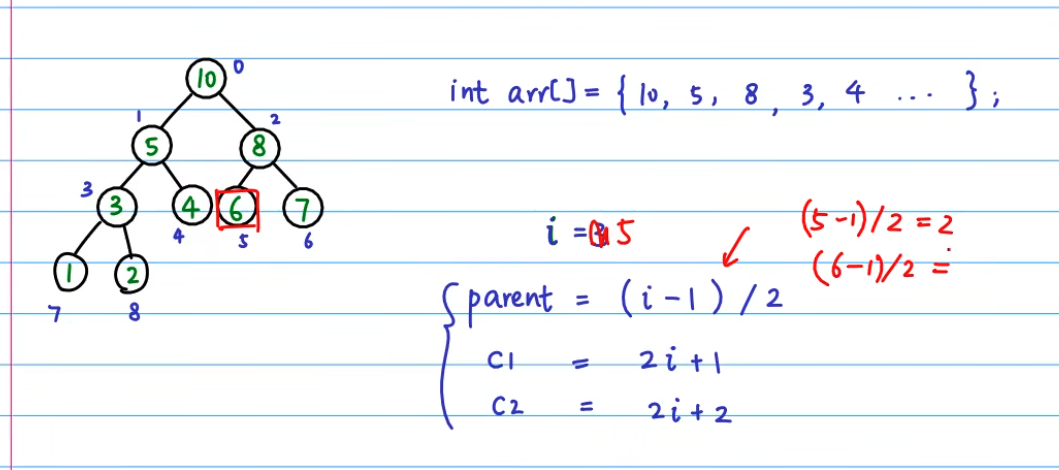 10 0
1 2
5 8
3
3 4 6 7
4 5 6
1 2
7 8
int arr[] = { 10, 5, 8, 3, 4 ... };
i = 5
(5-1)/2 = 2
(6-1)/2 =
parent = (i-1)/2
C1 = 2i+1
C2 = 2i+2